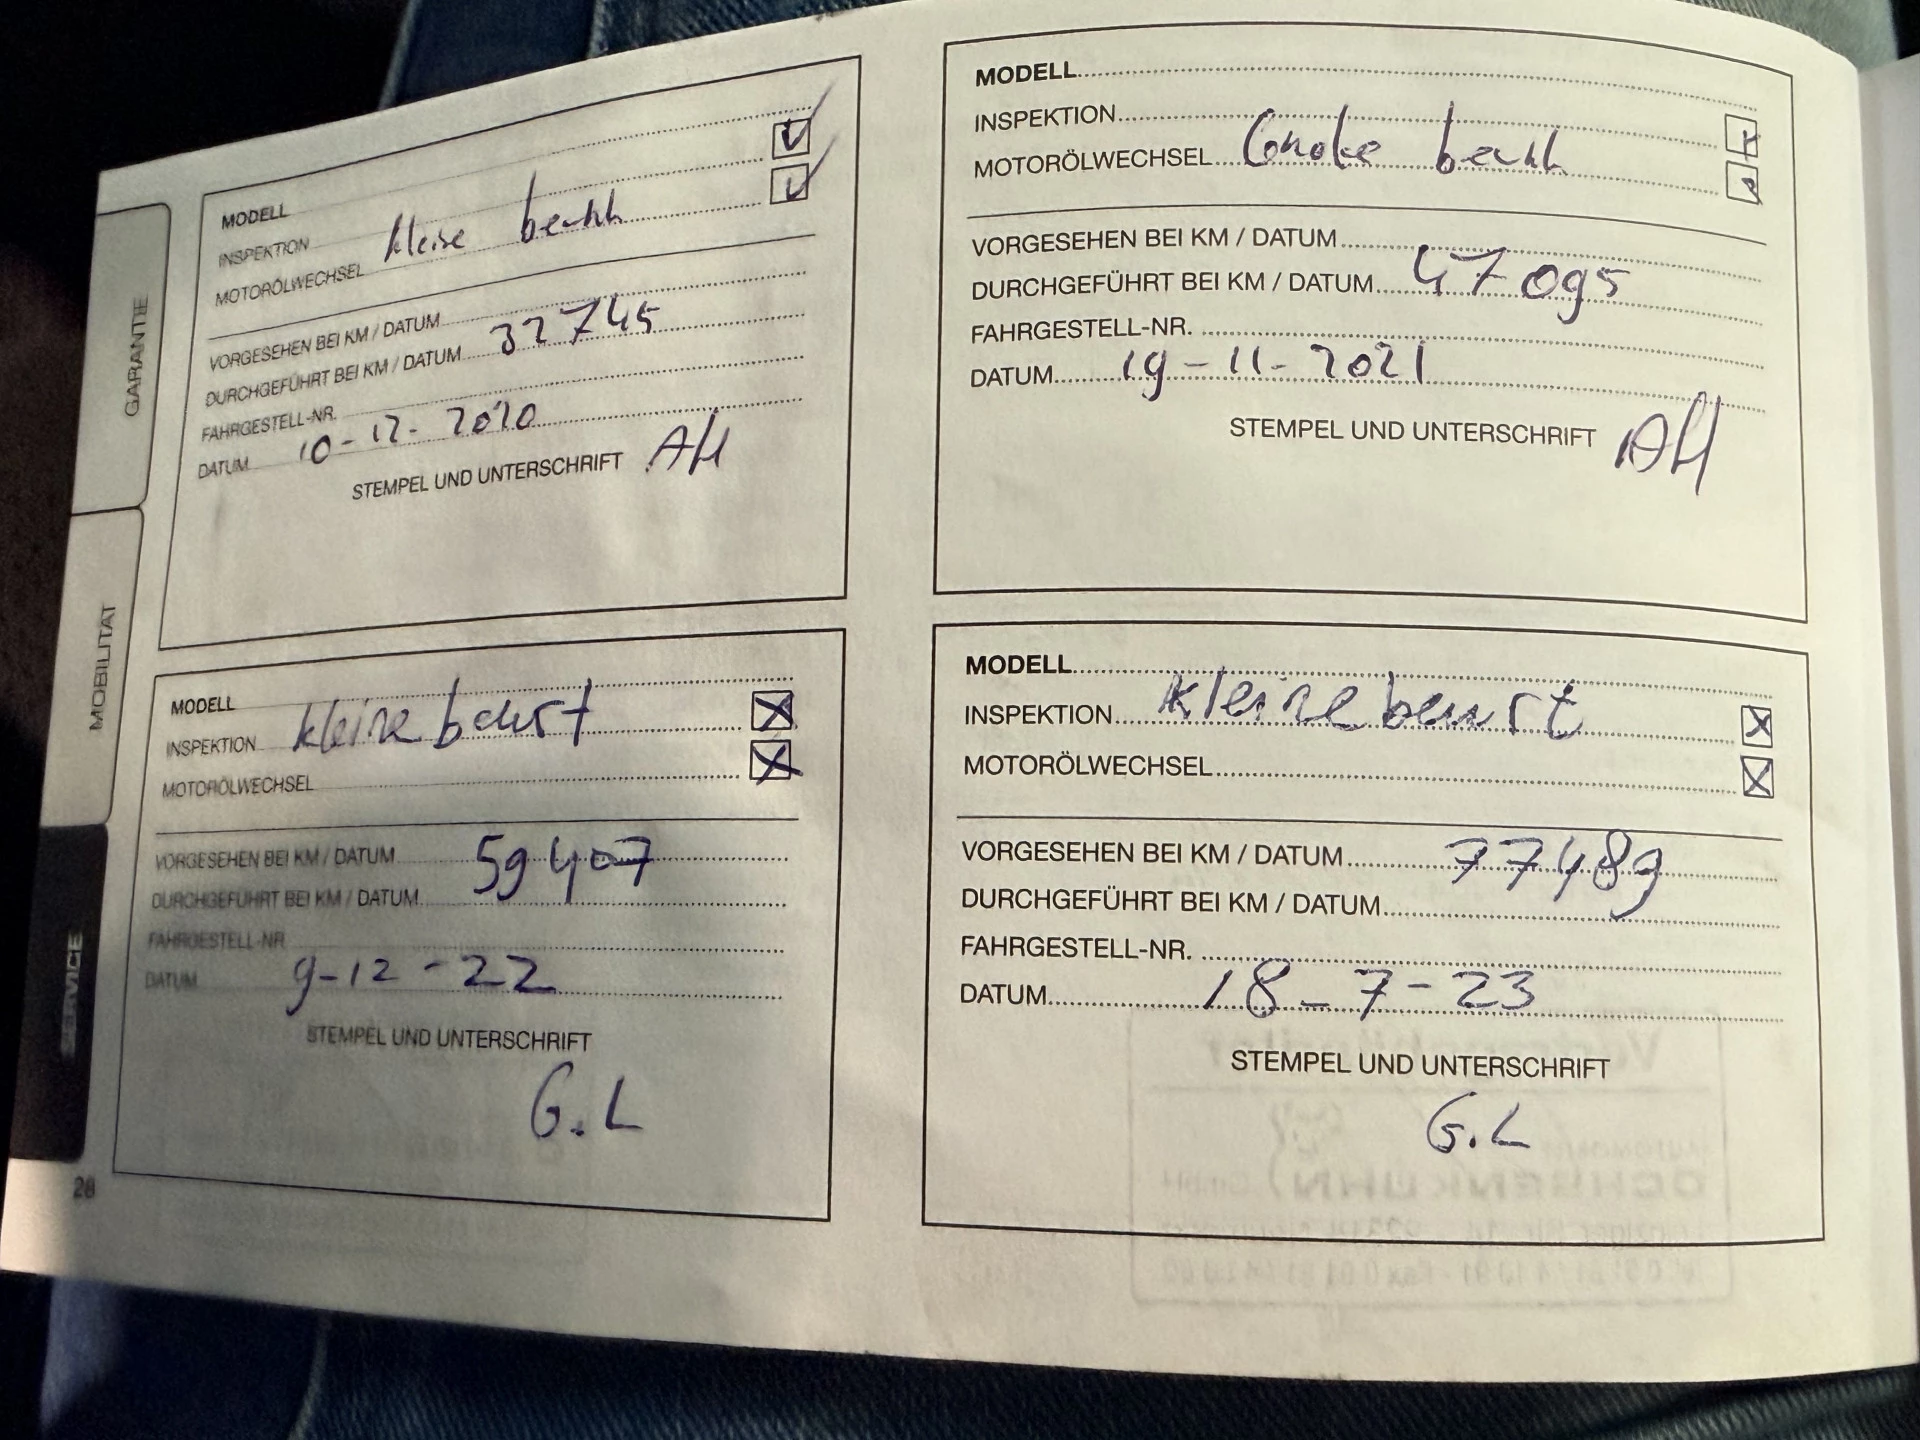 GARANTIE
MOBILITÄT
SERVICE
MODELL
INSPEKTION
MOTORÖLWECHSEL kleine
VORGESEHEN BEI KM / DATUM
DURCHGEFÜHRT BEI KM / DATUM 32745
FAHRGESTELL-NR.
DATUM 10-12-2020
STEMPEL UND UNTERSCHRIFT AH
MODELL
INSPEKTION
MOTORÖLWECHSEL
VORGESEHEN BEI KM / DATUM
DURCHGEFÜHRT BEI KM / DATUM 47095
FAHRGESTELL-NR.
DATUM 19-11-2021
STEMPEL UND UNTERSCHRIFT AH
MODELL
INSPEKTION kleine beurt
MOTORÖLWECHSEL
VORGESEHEN BEI KM / DATUM 59407
DURCHGEFÜHRT BEI KM / DATUM
FAHRGESTELL-NR.
DATUM 9-12-22
STEMPEL UND UNTERSCHRIFT
G.L
MODELL
INSPEKTION kleine beurt
MOTORÖLWECHSEL
VORGESEHEN BEI KM / DATUM 77489
DURCHGEFÜHRT BEI KM / DATUM
FAHRGESTELL-NR.
DATUM 18-7-23
STEMPEL UND UNTERSCHRIFT
G.L
28